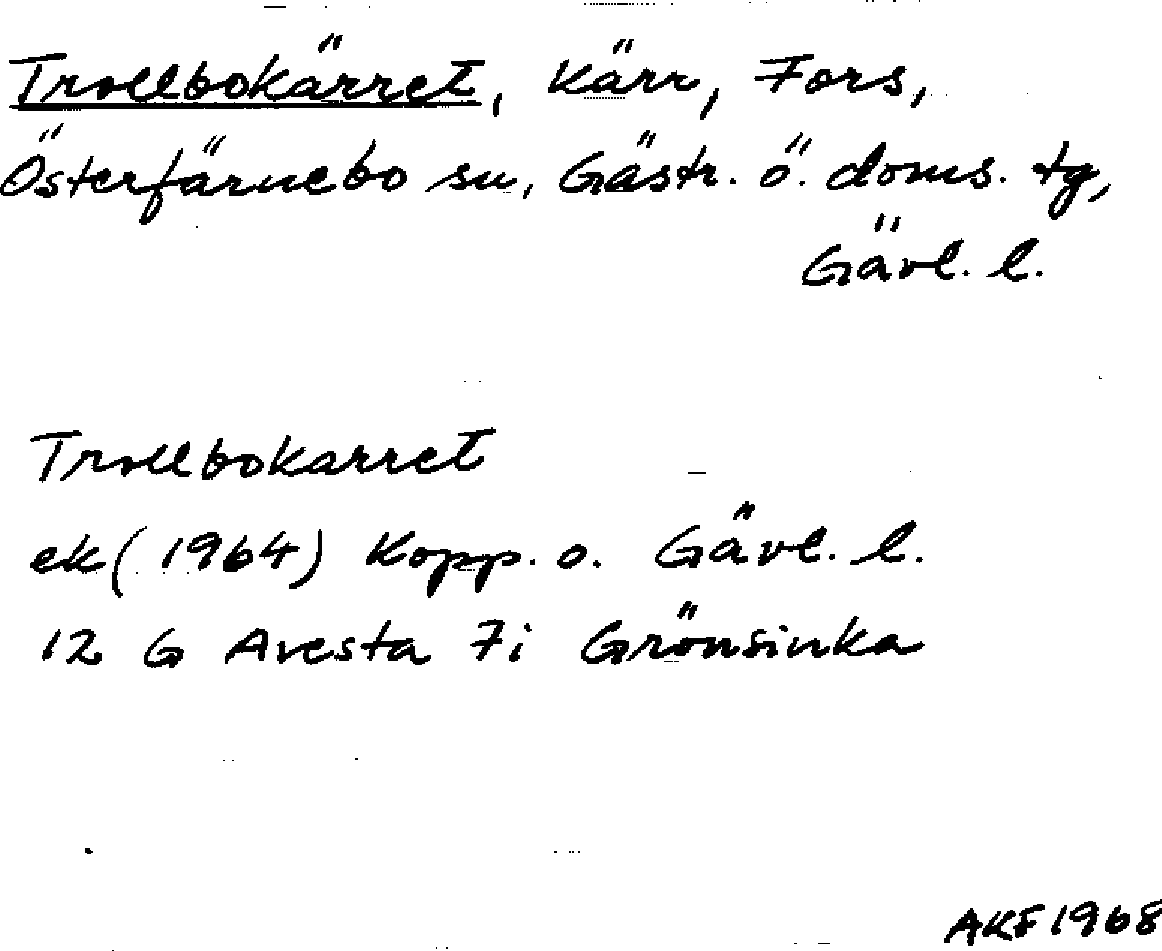 Trollbokärret, kärr, Fors,
Österfärnebo sn, Gästr. ö. doms. tg,
Gävl. l.
Trollbokarret
ek (1964) Kopp. o. Gävl. l.
12 G Avesta 7i Grönsinka
AKF 1968